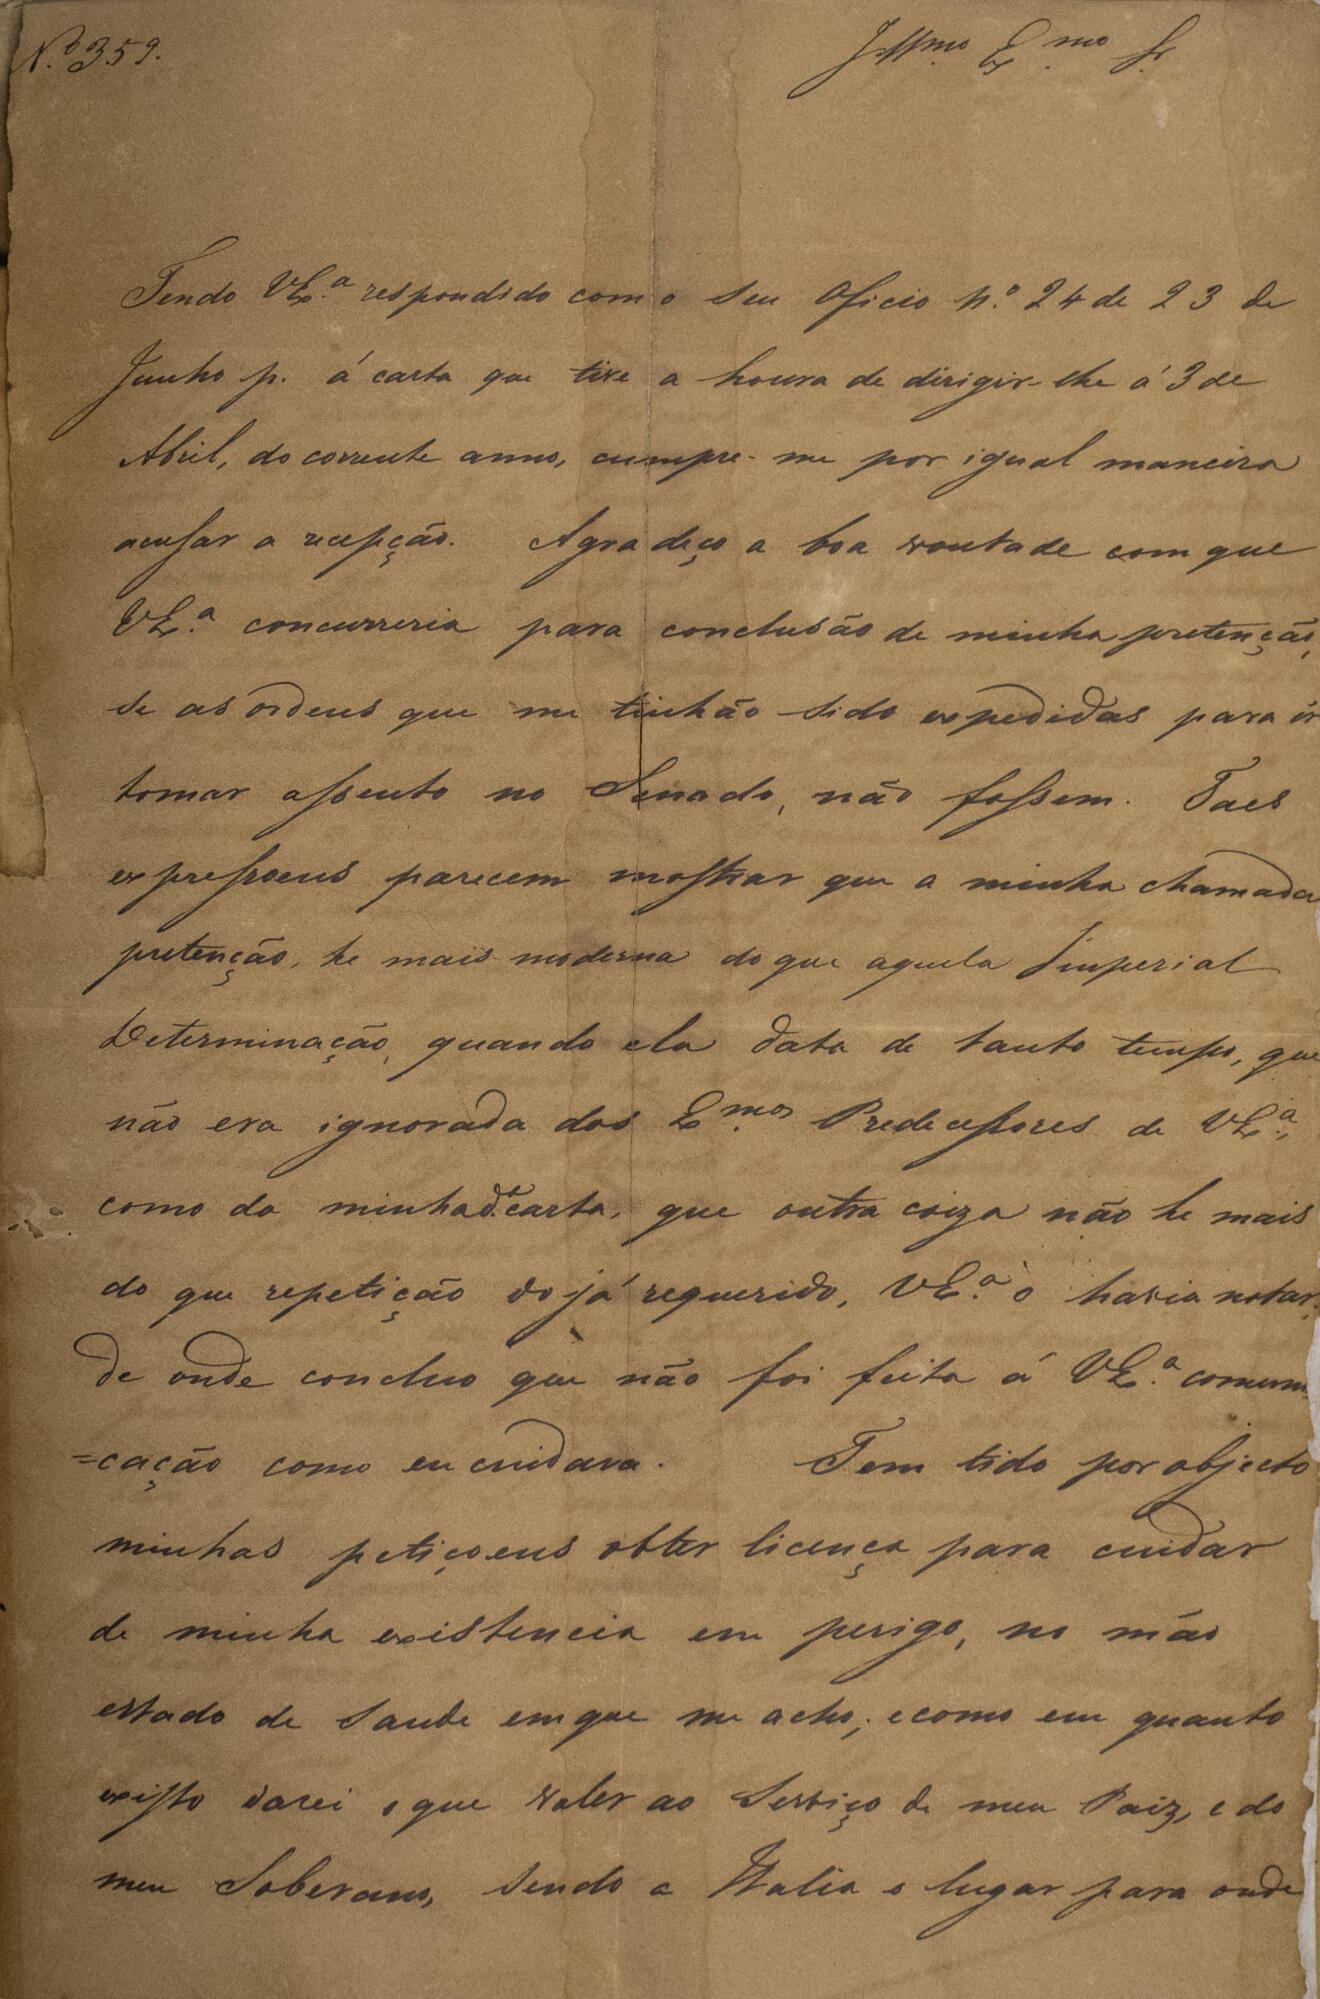 N.º 359.
Illmo Exmo Sr
Tendo VEx.ª respondido com o seu Oficio N.º 24 de 23 de
Junho p. á carta que tive a honra de dirigir-lhe á 3 de
Abril, do corrente anno, cumpre-me por igual maneira
acusar a recepção. Agradeço a boa vontade com que
VEx.ª concurreria para conclusão de minha pretenção,
se as ordens que me tinhão sido expedidas para ir
tomar assento no Senado, não fossem. Taes
expressoens parecem mostrar que a minha chamada
pretenção, he mais moderna do que aquela Imperial
Determinação, quando ela data de tanto tempo, que
não era ignorada dos Exmos Predecessores de VEx.ª,
como da minha d.ª carta, que outra coiza não he mais
do que repetição do já requerido, VEx.ª o havia notar,
de onde concluo que não foi feita á VEx.ª comuni
=cação como eu cuidava. Tem tido por objecto
minhas petiçoens obter licença para cuidar
de minha existencia em perigo, no máo
estado de saude em que me acho; e como em quanto
existo darei o que valer ao Serviço de meu Paiz, e do
meu Soberano, sendo a Italia o lugar para onde